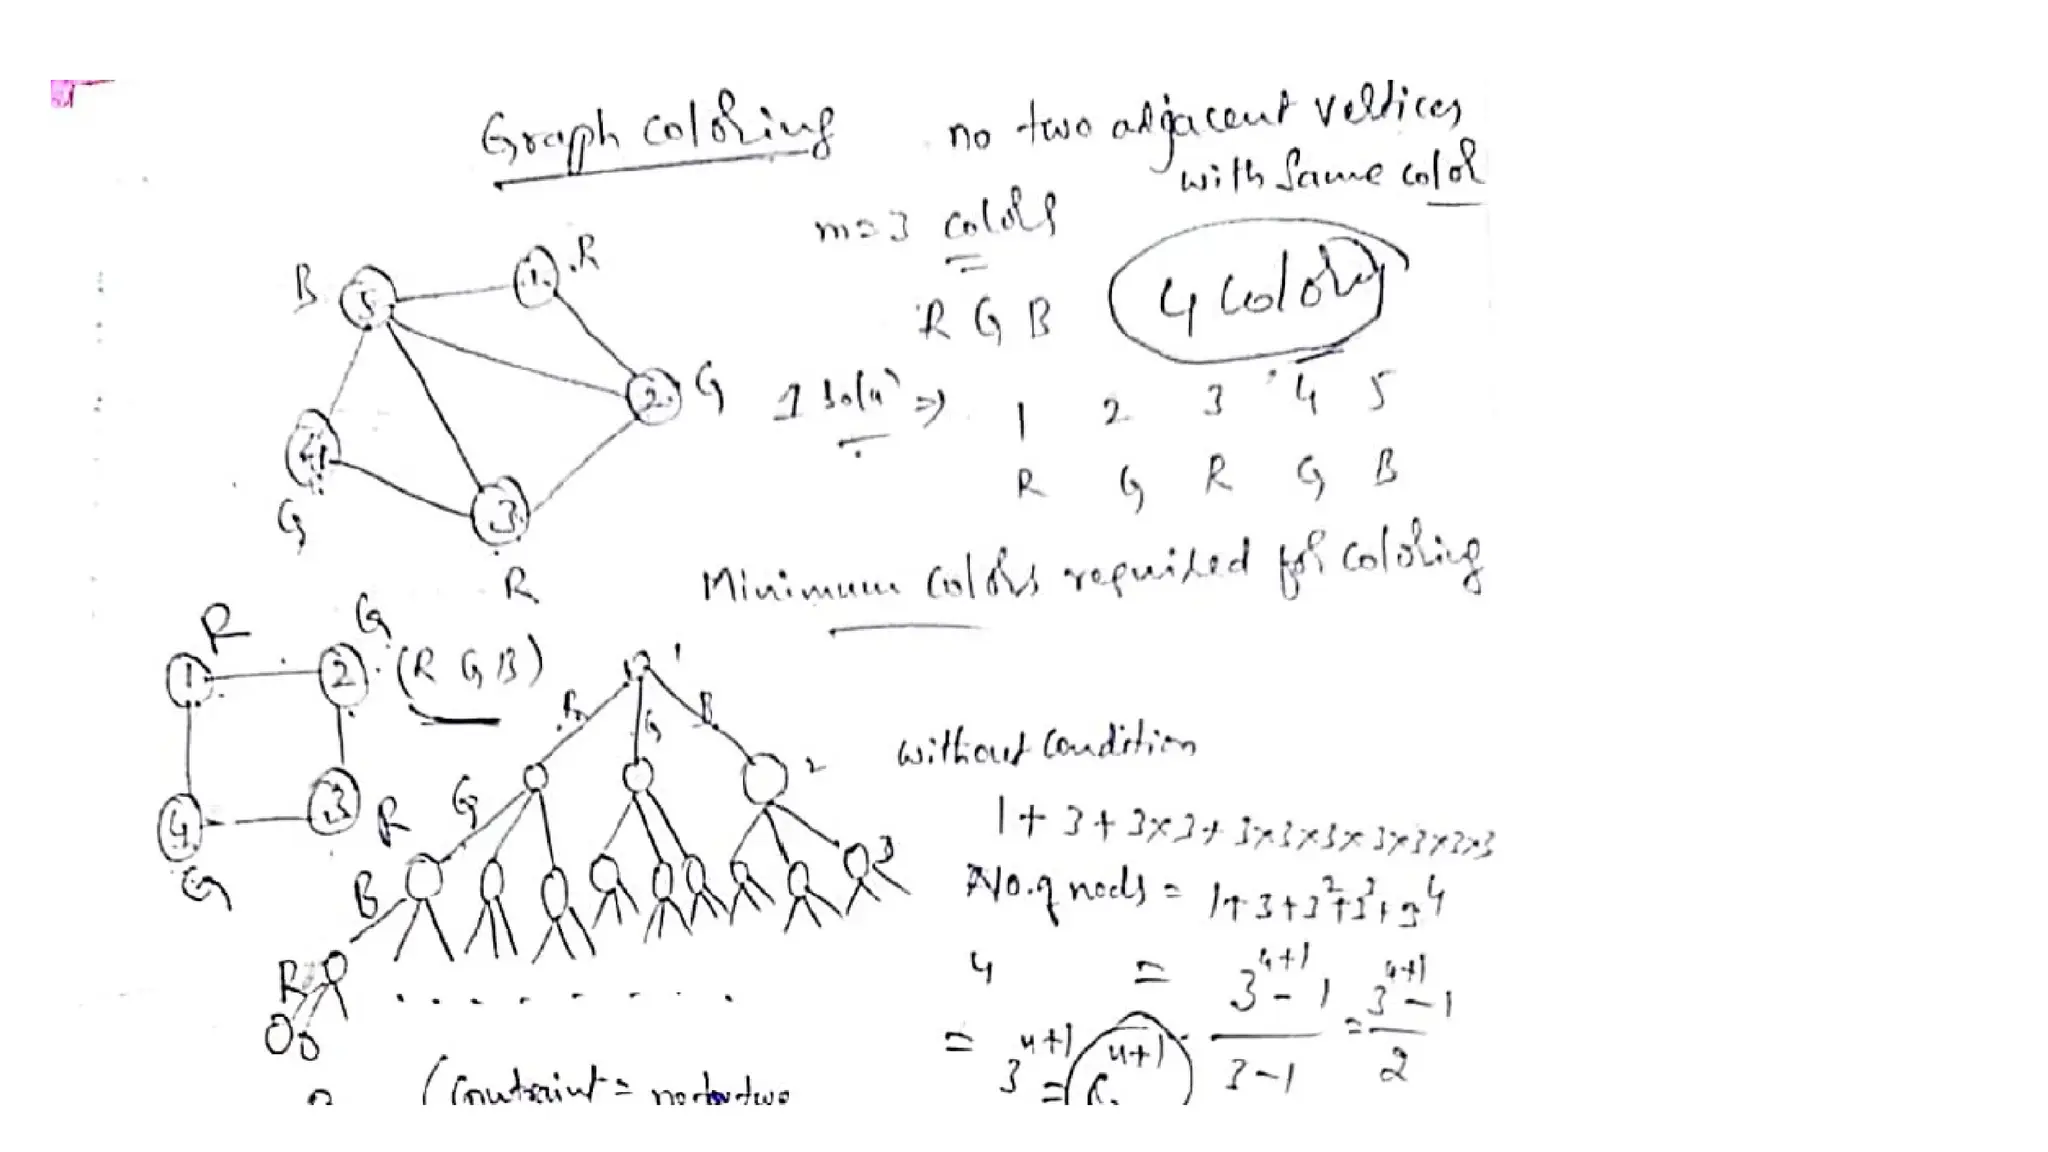 Graph coloring
no two adjacent vertices
with same color
m=3 colors
R G B
4 coloring
B 5
1 R
2 G
4 G
3 R
1 soln => 1 2 3 4 5
R G R G B
Minimum colors required for coloring
R G
1 2 (R G B)
4 3 R
G
1
R G B
2
G
3
B
R
without condition
1+3+3×3+3×3×3×3×3×3×3
No. of nodes = 1+3+3²+3³+3⁴
4 = 3^(4+1) - 1 / 3-1 = 3^(4+1) - 1 / 2
= 3^(n+1) = C^(n+1)
(Contraint = no two